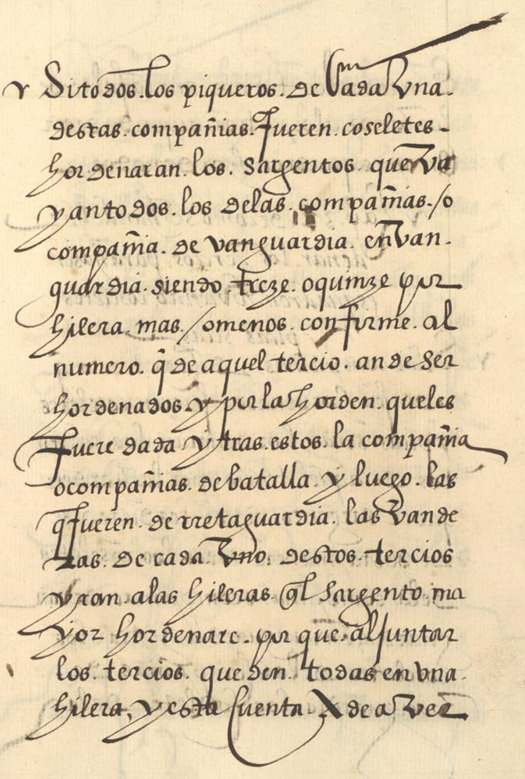 y Si todos. los piqueros. de Cada Vna.
destas. compañias. fueren. coseletes.
hordenaran. los. sargentos. que Va
yan todos. los delas. compañias. / o
compañia. de vanguardia. en Van.
guardia. siendo. treze. o quinze por
hilera. mas. / omenos. conforme. al
numero. q̃ de aquel tercio. an de ser
hordenados. y por la horden. queles
fuere dada y tras. estos. la compañia
o compañias. de batalla. y luego. las
q̃ fueren. de rretaguardia. las Vande
ras. de cada Vno. destos. tercios
yran. alas hileras q̃l sargento. ma
yor hordenare. por que. al juntar
los. tercios. queden. todas en vna.
hilera, y esta Cuenta. X de aver